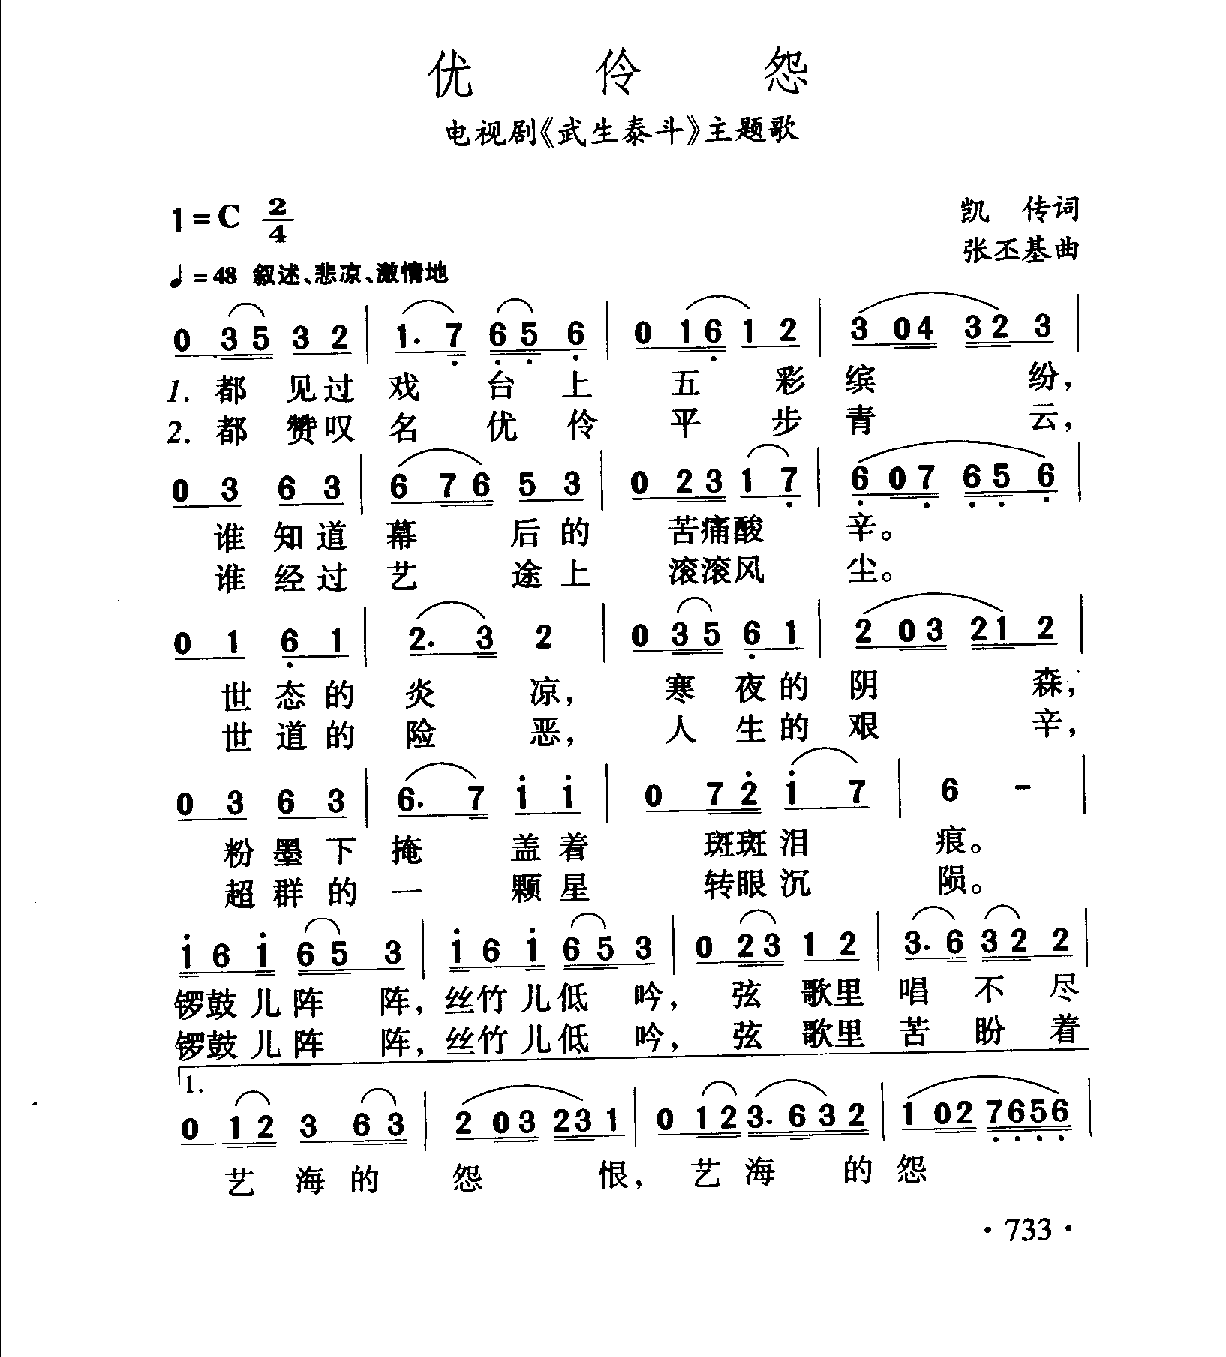 优伶怨
电视剧《武生泰斗》主题歌
1=C 2/4
凯 传词
张丕基曲
♩=48 叙述、悲凉、激情地
0 3 5 3 2 | 1. 7 6 5 6 | 0 1 6 1 2 | 3 0 4 3 2 3 |
1. 都 见过 戏 台 上 五 彩 缤 纷，
2. 都 赞叹 名 优 伶 平 步 青 云，
0 3 6 3 | 6 7 6 5 3 | 0 2 3 1 7 | 6 0 7 6 5 6 |
谁 知 道 幕 后 的 苦痛酸 辛。
谁 经 过 艺 途 上 滚滚风 尘。
0 1 6 1 | 2. 3 2 | 0 3 5 6 1 | 2 0 3 2 1 2 |
世 态 的 炎 凉， 寒 夜 的 阴 森，
世 道 的 险 恶， 人 生 的 艰 辛，
0 3 6 3 | 6. 7 1 1 | 0 7 2 1 7 | 6 - |
粉 墨 下 掩 盖 着 斑斑泪 痕。
超 群 的 一 颗 星 转眼沉 陨。
1 6 1 6 5 3 | 1 6 1 6 5 3 | 0 2 3 1 2 | 3. 6 3 2 2 |
锣鼓儿阵 阵，丝竹儿低 吟， 弦 歌里 唱 不 尽
锣鼓儿阵 阵，丝竹儿低 吟， 弦 歌里 苦 盼 着
1.
0 1 2 3 6 3 | 2 0 3 2 3 1 | 0 1 2 3. 6 3 2 | 1 0 2 7 6 5 6 |
艺 海 的 怨 恨， 艺 海 的 怨
· 733 ·